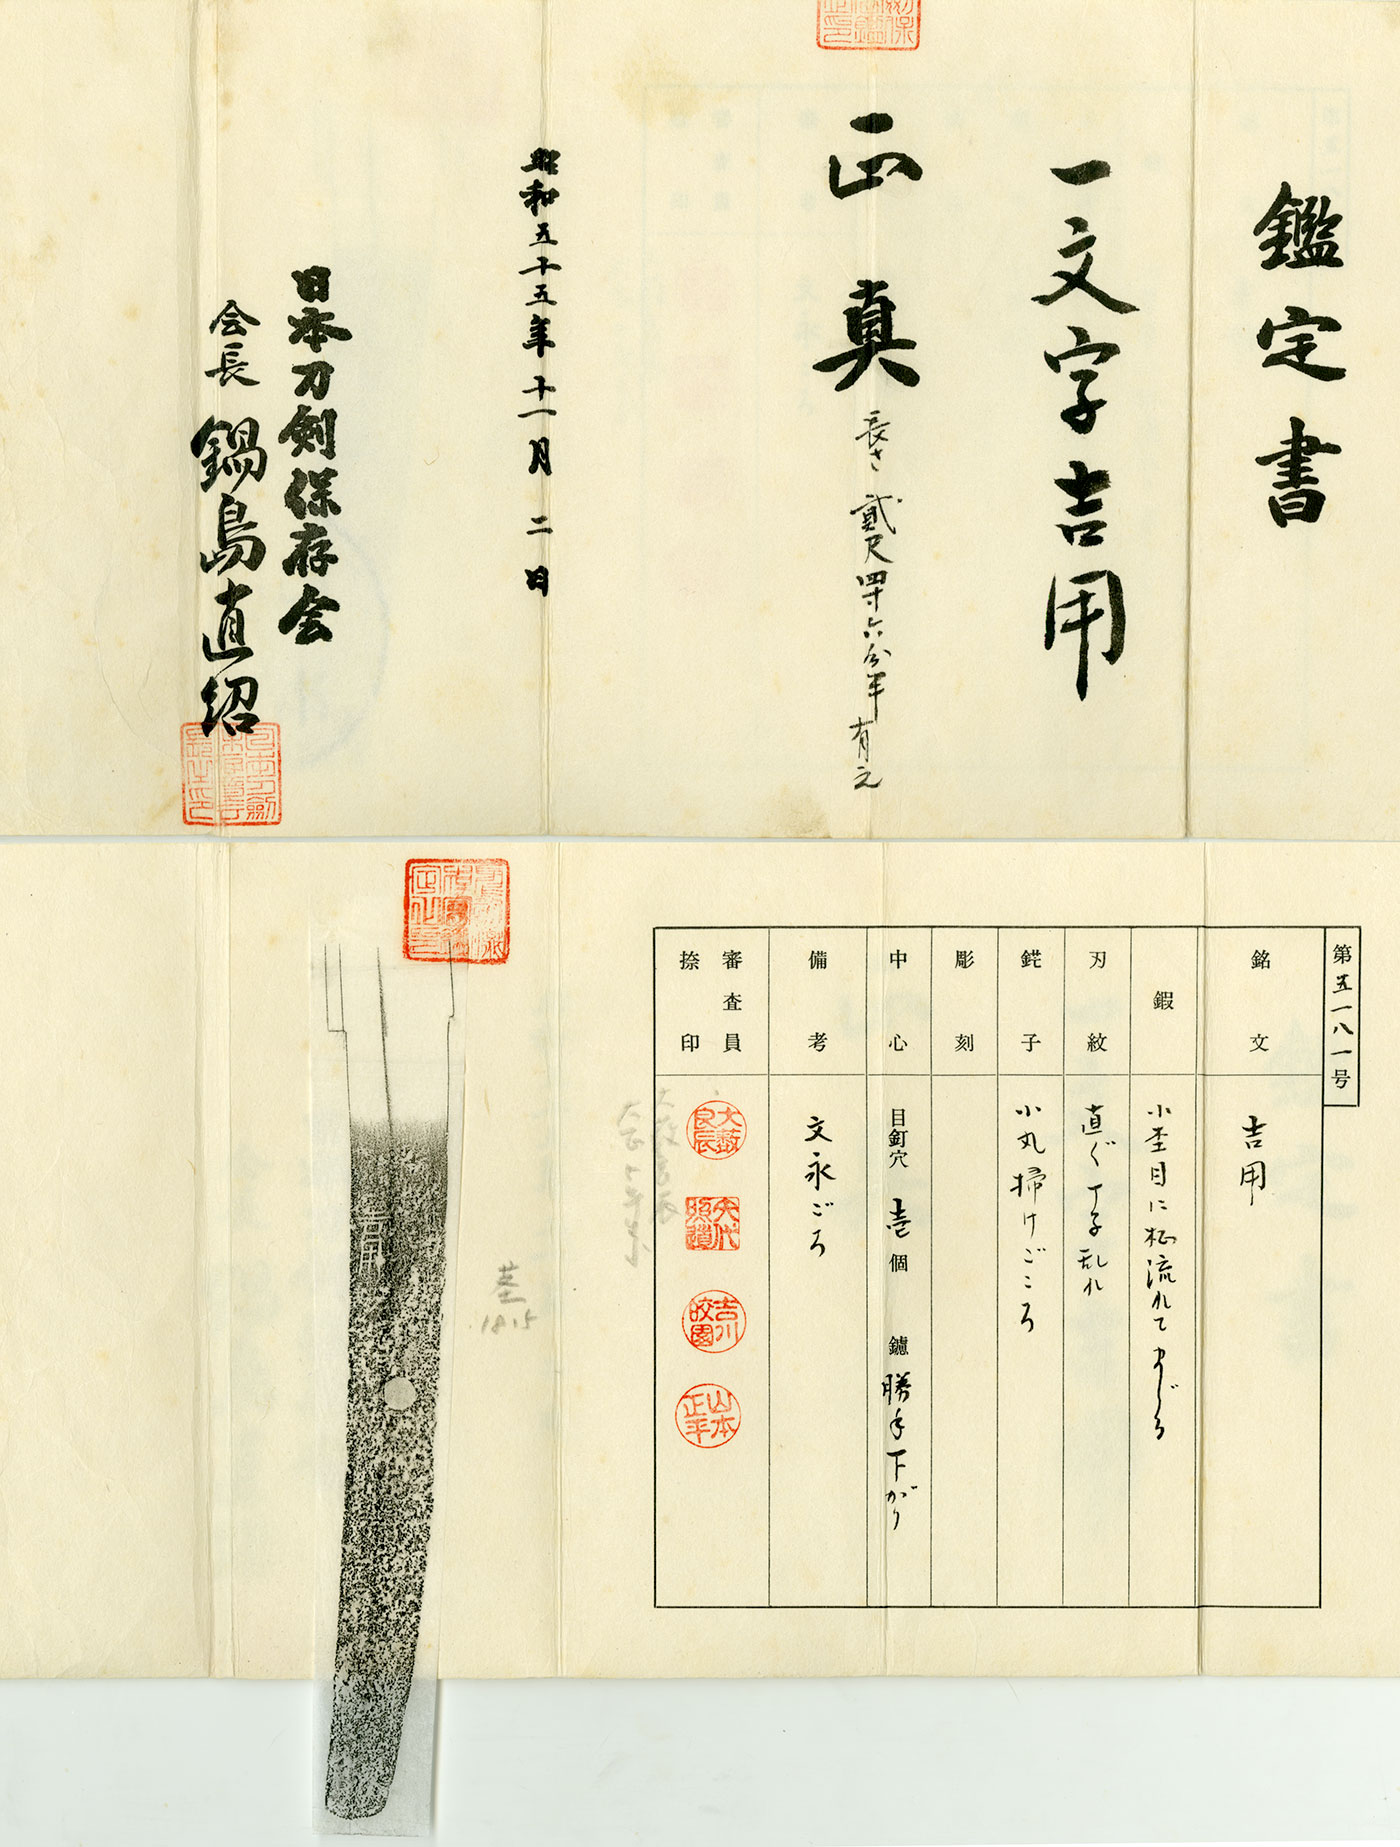 鑑定書
一文字吉用
正真
長さ 貳尺四寸六分半 有之
昭和五十五年十一月二日
日本刀剣保存会
会長 鍋島直紹
第五一八一号
銘文
吉用
鍜
小杢目に柾流れてまじる
刃紋
直ぐ丁子乱れ
鋩子
小丸掃けごころ
彫刻
中心
目釘穴 壱個 鑢 勝手下がり
備考
文永ごろ
審査員
捺印
大薮
良辰
矢代
照道
吉川
皎園
山本
正平
吉用
茎
18.15